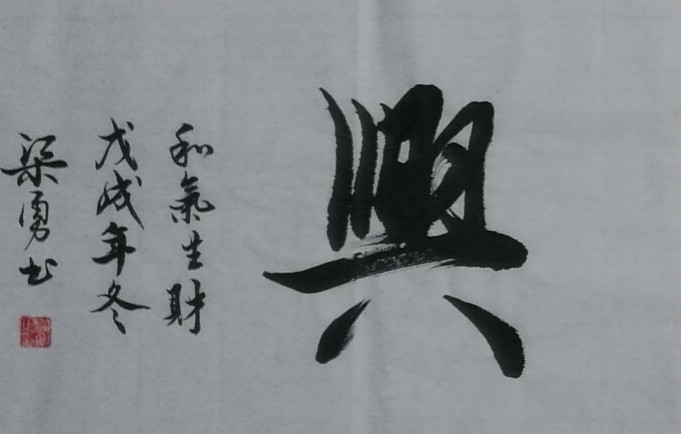 興
和氣生財
戊戌年冬
梁勇书